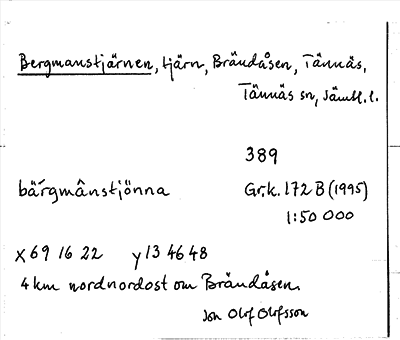 Bergmanstjärnen, tjärn, Brändåsen, Tännäs,
Tännäs sn, Jämtl. l.
389
bärgmânstjönna
Gr.k. 172 B (1995)
1:50 000
x 69 16 22 y 13 46 48
4 km nordnordost om Brändåsen.
Jon Olof Olofsson